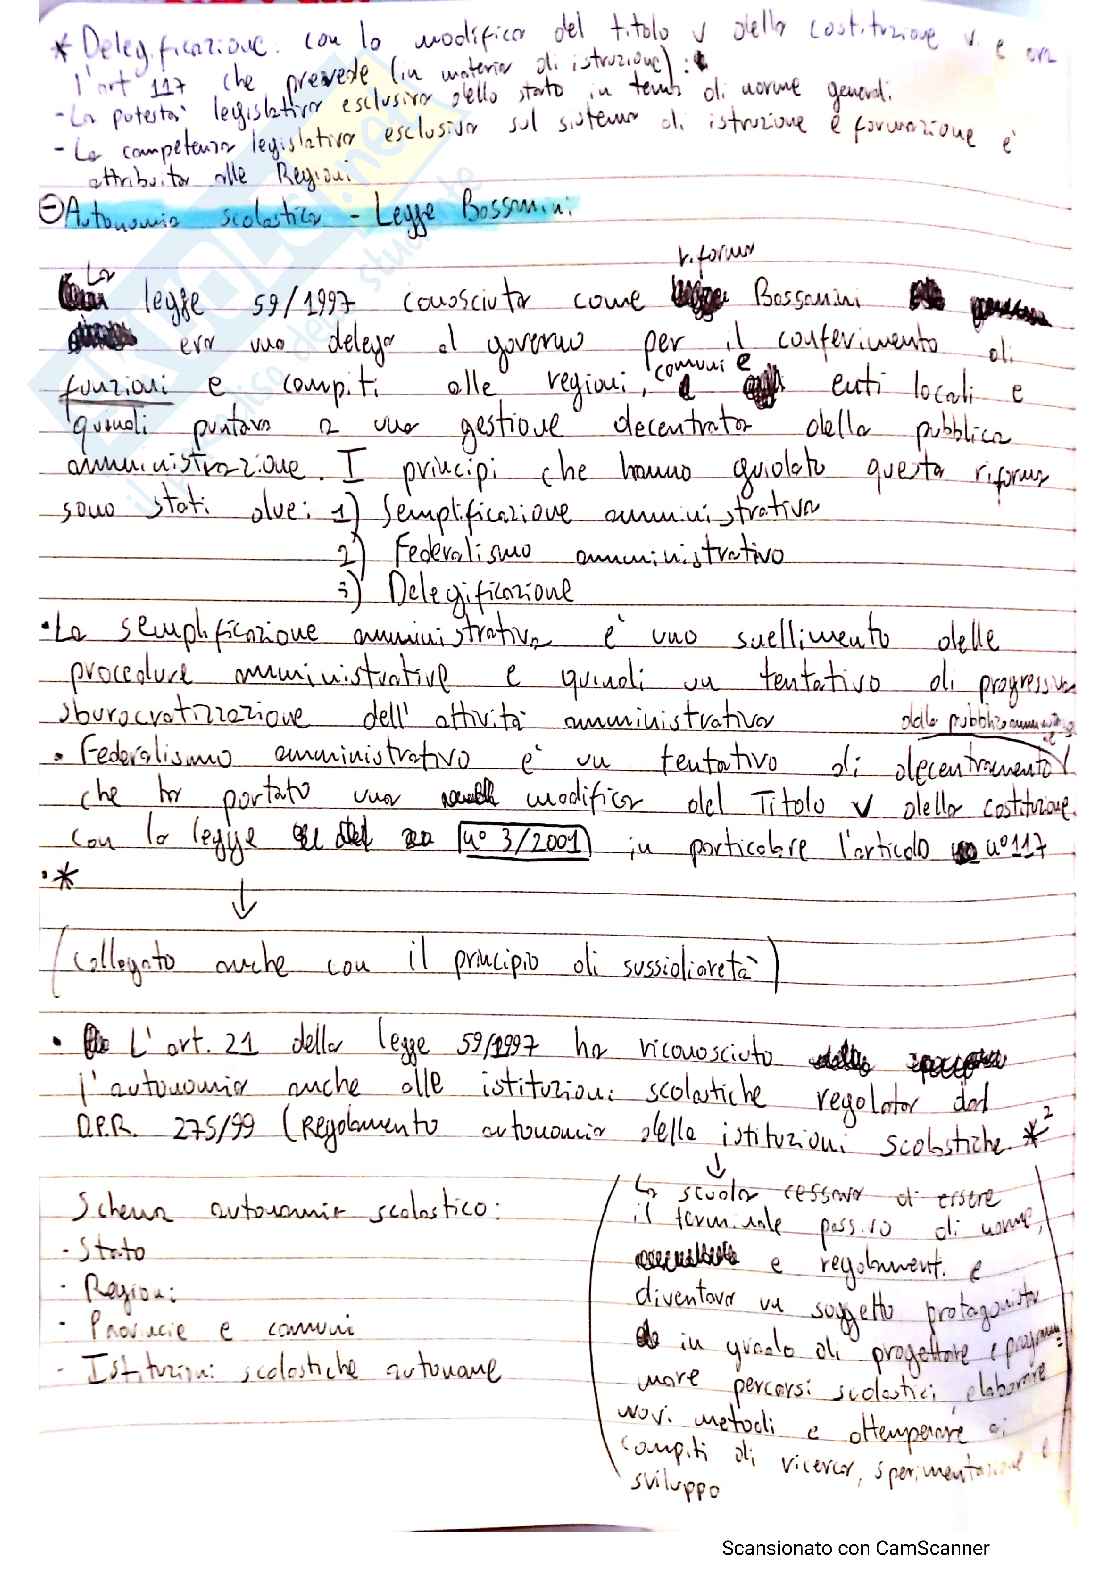 * Delegificazione. con la modifica del titolo V della costituzione v. e ora
l'art 117 che prevede (in materia di istruzione):
- La potestà legislativa esclusiva dello stato in tema di norme generali.
- La competenza legislativa esclusiva sul sistema di istruzione e formazione è
attribuita alle Regioni
Autonomia scolastica - Legge Bassanini:
riforma
La legge 59/1997 conosciuta come Bassanini
era una delega al governo per il conferimento di
funzioni e compiti alle regioni, comuni e enti locali e
quindi puntava a una gestione decentrata della pubblica
amministrazione. I principi che hanno guidato questa riforma
sono stati due: 1) Semplificazione amministrativa
2) Federalismo amministrativo
3) Delegificazione
• La semplificazione amministrativa è uno snellimento delle
procedure amministrative e quindi un tentativo di progressiva
sburocratizzazione dell'attività amministrativa
della pubblica
• Federalismo amministrativo è un tentativo di decentramento
che ha portato una modifica del Titolo V della costituzione.
con la legge n° 3/2001 in particolare l'articolo n° 117
• *
↓
(Collegato anche con il principio di sussidiaretà)
• L'art. 21 della legge 59/1997 ha riconosciuto
l'autonomia anche alle istituzioni scolastiche regolata dal
D.P.R. 275/99 (Regolamento autonomia delle istituzioni scolastiche *2
↓
Schema autonomia scolastica:
- Stato
- Regioni
- Provincie e comuni
- Istituzioni scolastiche autonome
La scuola cessava di essere
il terminale passivo di norme,
e regolamenti e
diventava un soggetto protagonista
in grado di progettare e programmare
percorsi scolastici, elaborare
novi metodi e ottemperare ai
compiti di ricerca, sperimentazione e
sviluppo
Scansionato con CamScanner